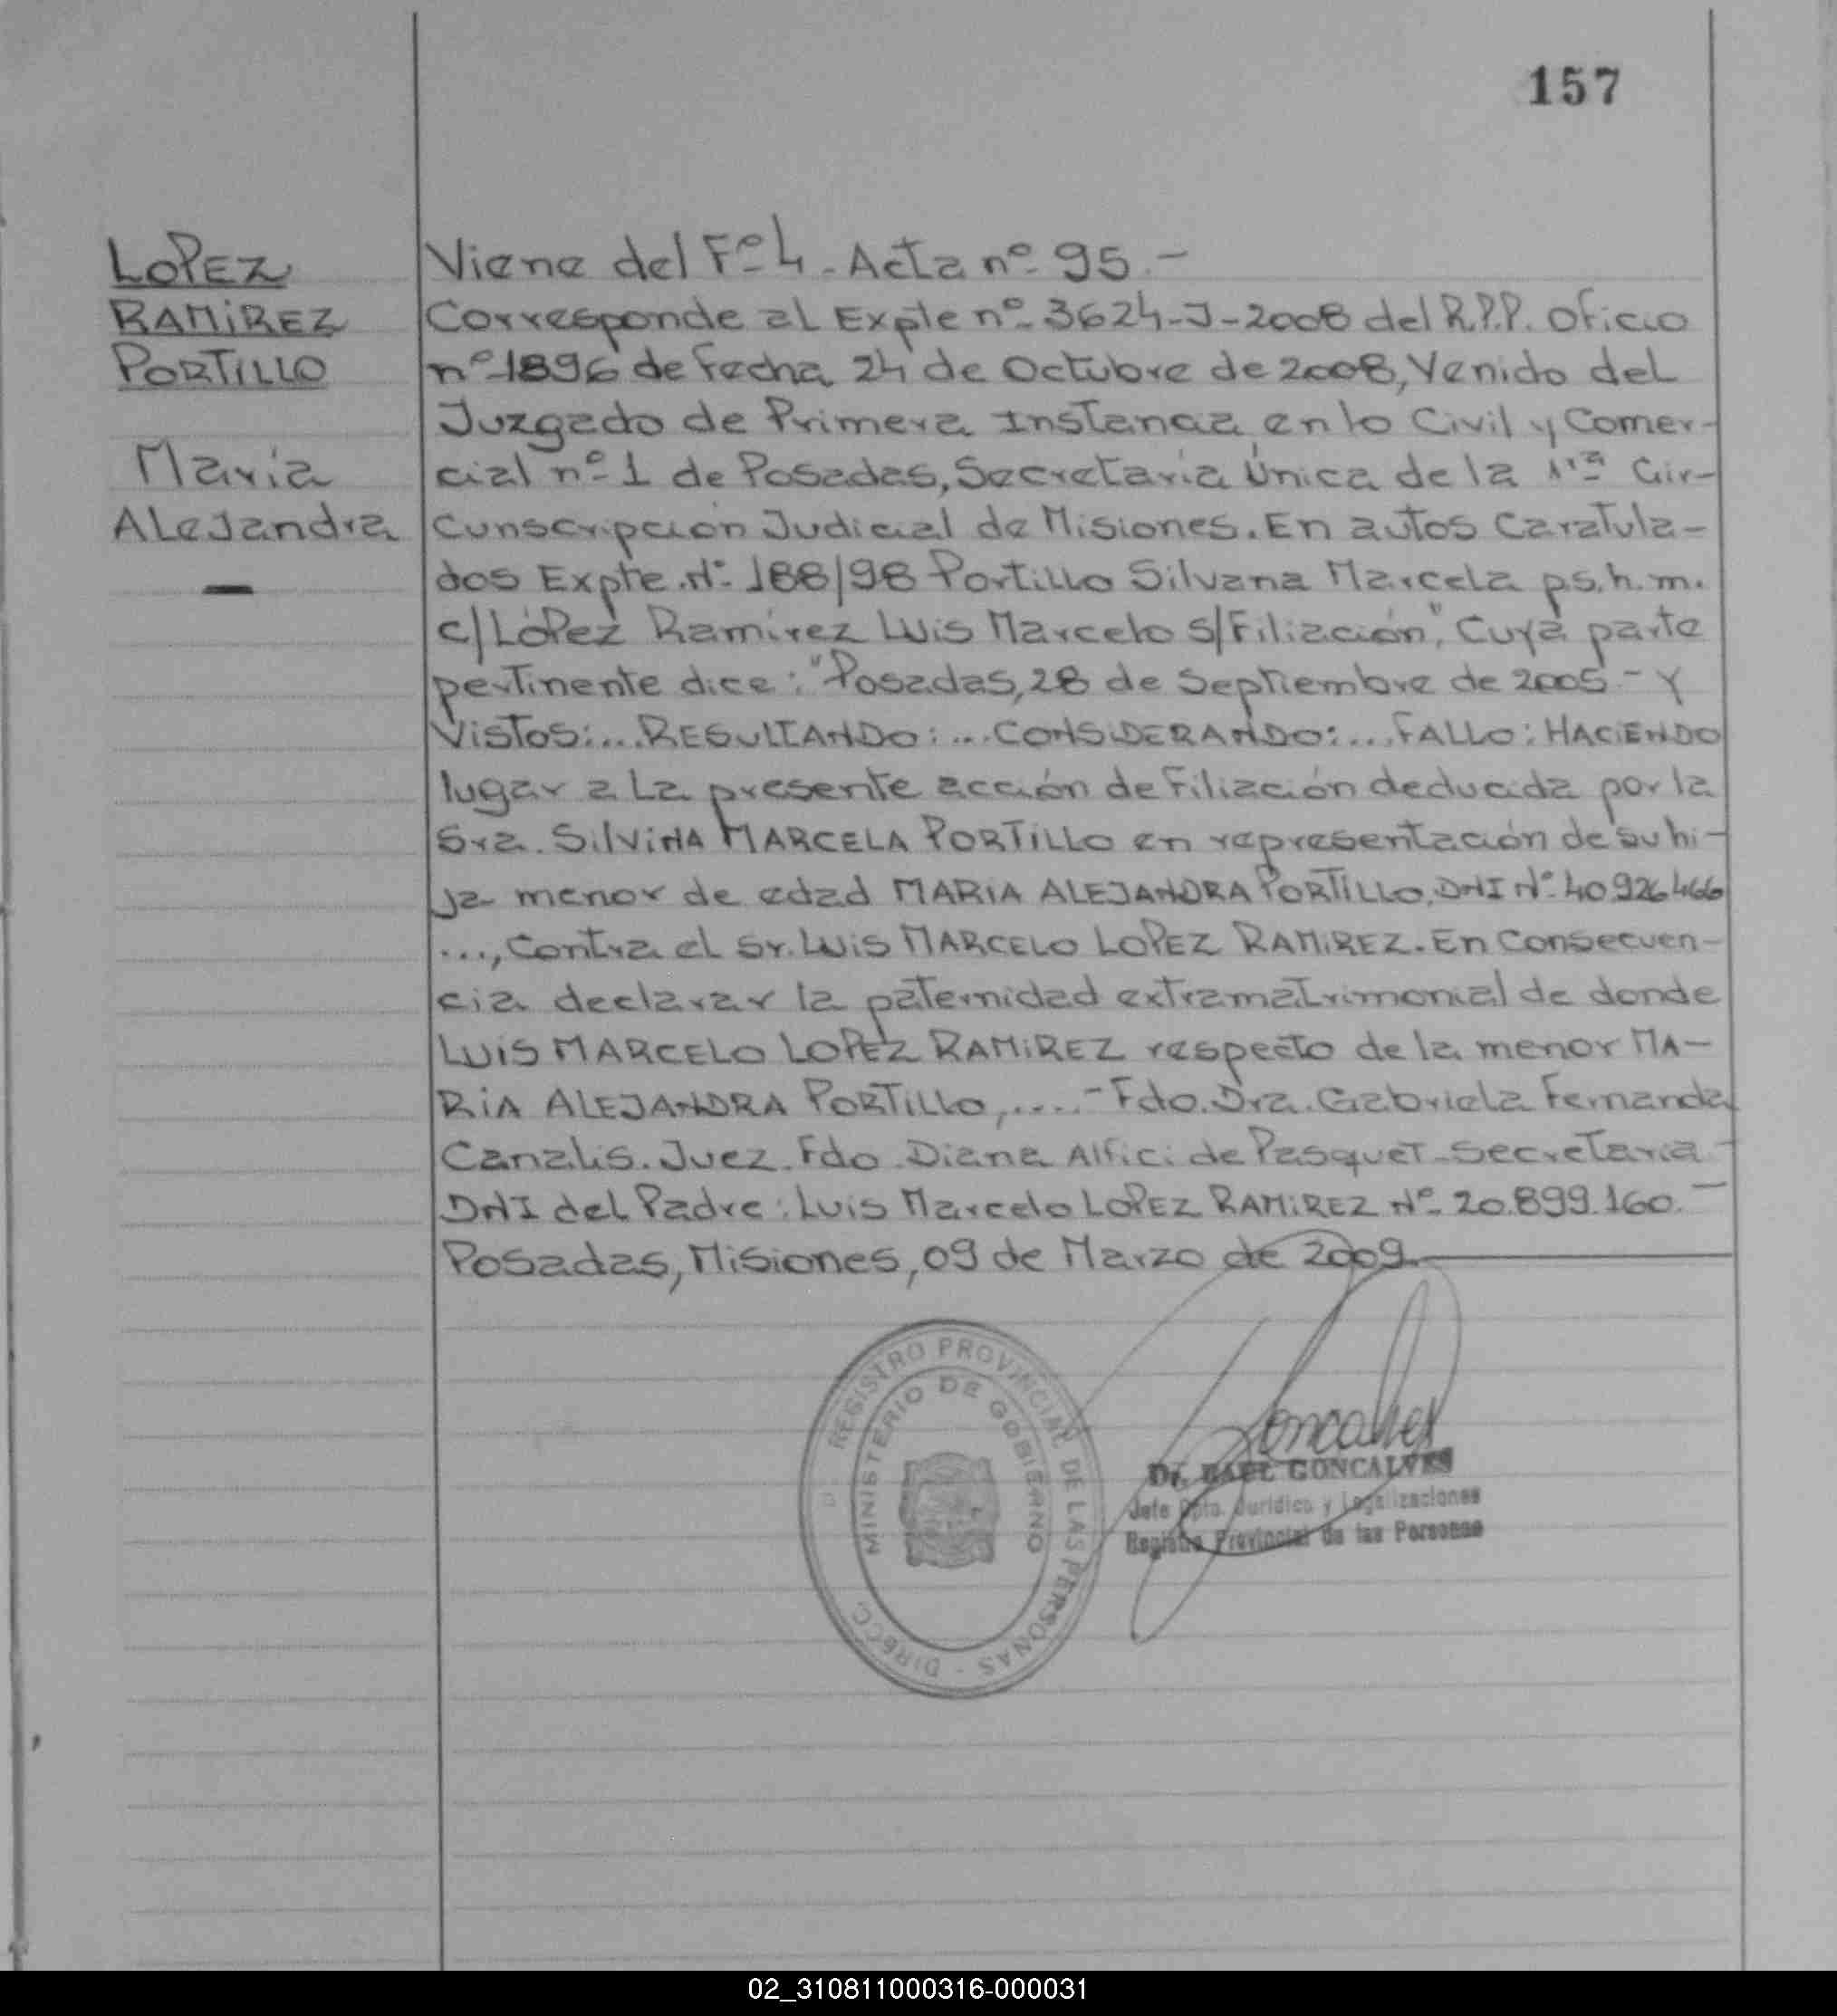 157
LOPEZ
RAMIREZ
PORTILLO
Maria
ALeJandra
Viene del Fº 4 - Acta nº 95.-
Corresponde al Expte nº 3624-J-2008 del R.P.P. Oficio
nº 1896 de Fecha 24 de Octubre de 2008, Venido del
Juzgado de Primera Instancia en lo Civil y Comer-
cial nº 1 de Posadas, Secretaria Única de la 1ra Cir-
cunscripción Judicial de Misiones. En autos Caratula-
dos Expte. Nº 188/98 Portillo Silvana Marcela p.s.h.m.
c/ López Ramírez Luis Marcelo s/Filiación", Cuya parte
pertinente dice: "Posadas, 28 de Septiembre de 2005.- Y
Vistos:... RESULTANDO:... CONSIDERANDO:... FALLO: HACIENDO
lugar a La presente acción de Filiación deducida por la
Sra. SILVINA MARCELA PORTILLO en representación de su hi-
ja menor de edad MARIA ALEJANDRA PORTILLO, DNI Nº 40.926.466
..., Contra el Sr. LUIS MARCELO LOPEZ RAMIREZ. En Consecuen-
cia declarar la paternidad extramatrimonial de donde
LUIS MARCELO LOPEZ RAMIREZ respecto de la menor MA-
RIA ALEJANDRA PORTILLO,....- Fdo. Dra. Gabriela Fernanda
Canalis. Juez. Fdo. Diana Alfici de Pasquet - Secretaria -
DNI del Padre: Luis Marcelo LOPEZ RAMIREZ Nº 20.899.160.-
Posadas, Misiones, 09 de Marzo de 2009.
DIRECC. REGISTRO PROVINCIAL DE LAS PERSONAS -
MINISTERIO DE GOBIERNO
Goncalves
Dr. RAUL GONCALVES
Jefe Dpto. Jurídico y Legalizaciones
Registro Provincial de las Personas
02_310811000316-000031